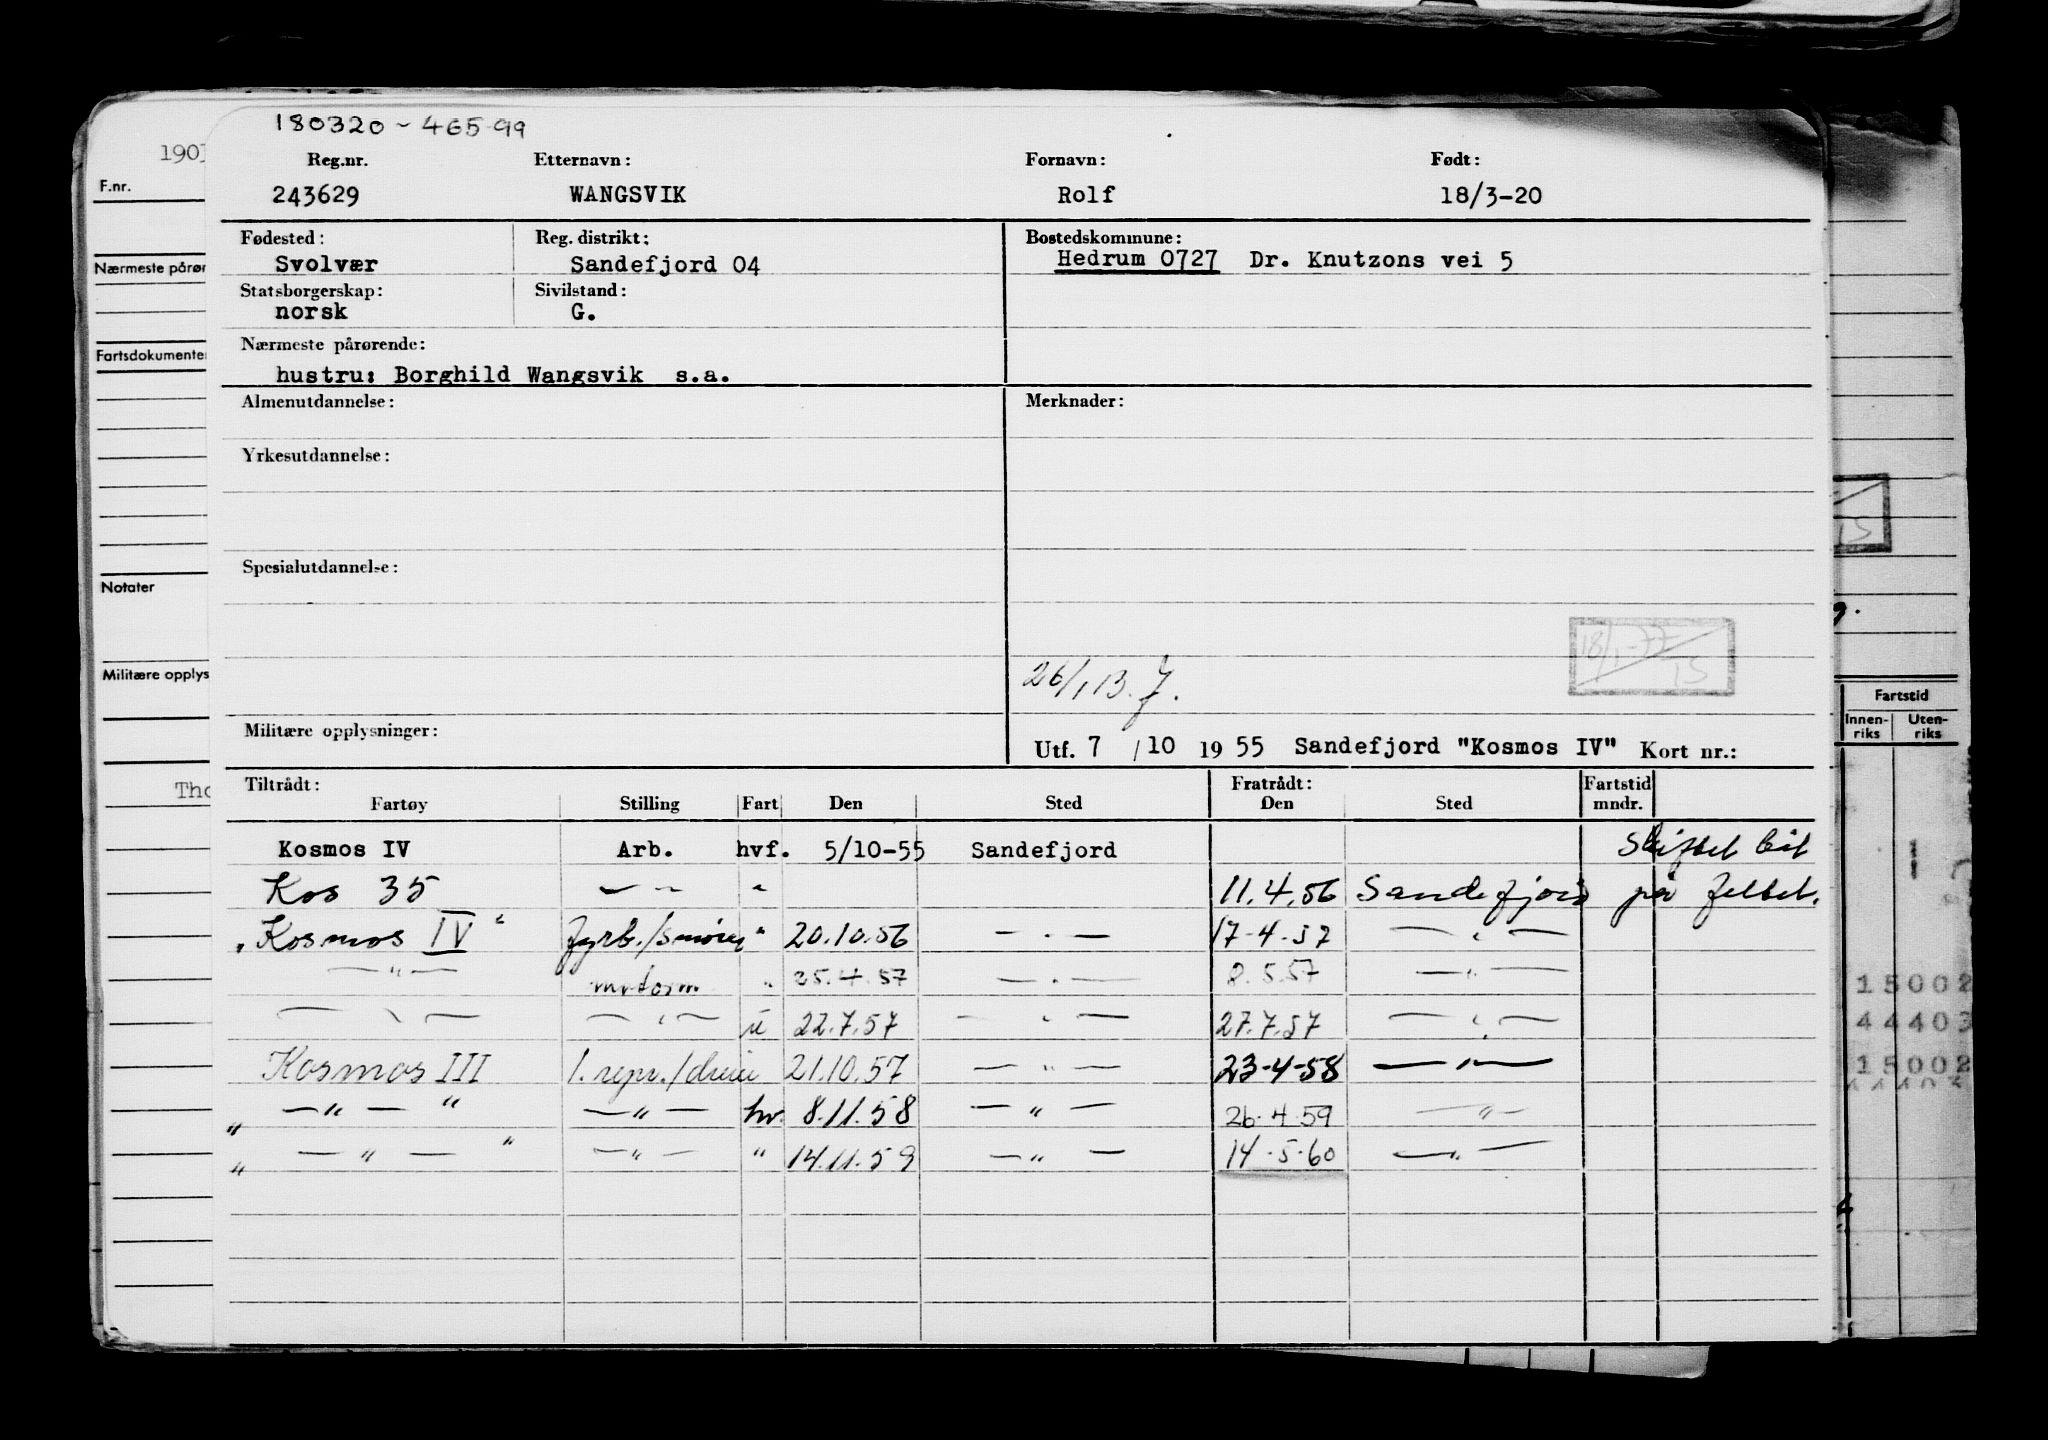 180320 - 465 99
Reg.nr. Etternavn: Fornavn: Født:
243629 WANGSVIK Rolf 18/3-20
Fødested: Reg. distrikt: Bostedskommune:
Svolvær Sandefjord 04 Hedrum 0727 Dr. Knutzons vei 5
Statsborgerskap: Sivilstand:
norsk G.
Nærmeste pårørende:
hustru: Borghild Wangsvik s.a.
Almenutdannelse: Merknader:
Yrkesutdannelse:
Spesialutdannelse:
18/1-77
15
26/1 13. J.
Militære opplysninger:
Utf. 7 /10 1955 Sandefjord "Kosmos IV" Kort nr.:
Tiltrådt: Fratrådt: Fartstid
Fartøy Stilling Fart Den Sted Den Sted mndr.
Kosmos IV Arb. hvf. 5/10-55 Sandefjord Skiftet båt
Kos 35 — " — " 11.4.56 Sandefjord på feltet.
"Kosmos IV" fyrb./smører " 20.10.56 — " — 17-4-57 — " —
— " — motorm. " 25.4.57 — " — 8.5.57 — " —
— " — — " — u 22.7.57 — " — 27.7.57 — " —
Kosmos III 1. repr./dreier 21.10.57 — " — 23-4-58 — " —
" — " — " — " — hv. 8.11.58 — " — 26.4.59 — " —
" — " — " — " — " 14.11.59 — " — 14-5-60 — " —
1903
F.nr.
Nærmeste pårør
Fartsdokumente
Notater
Militære opplys
Tho
15
g.
Fartstid
Innen-riks Uten-riks
1
15002
44403
15002